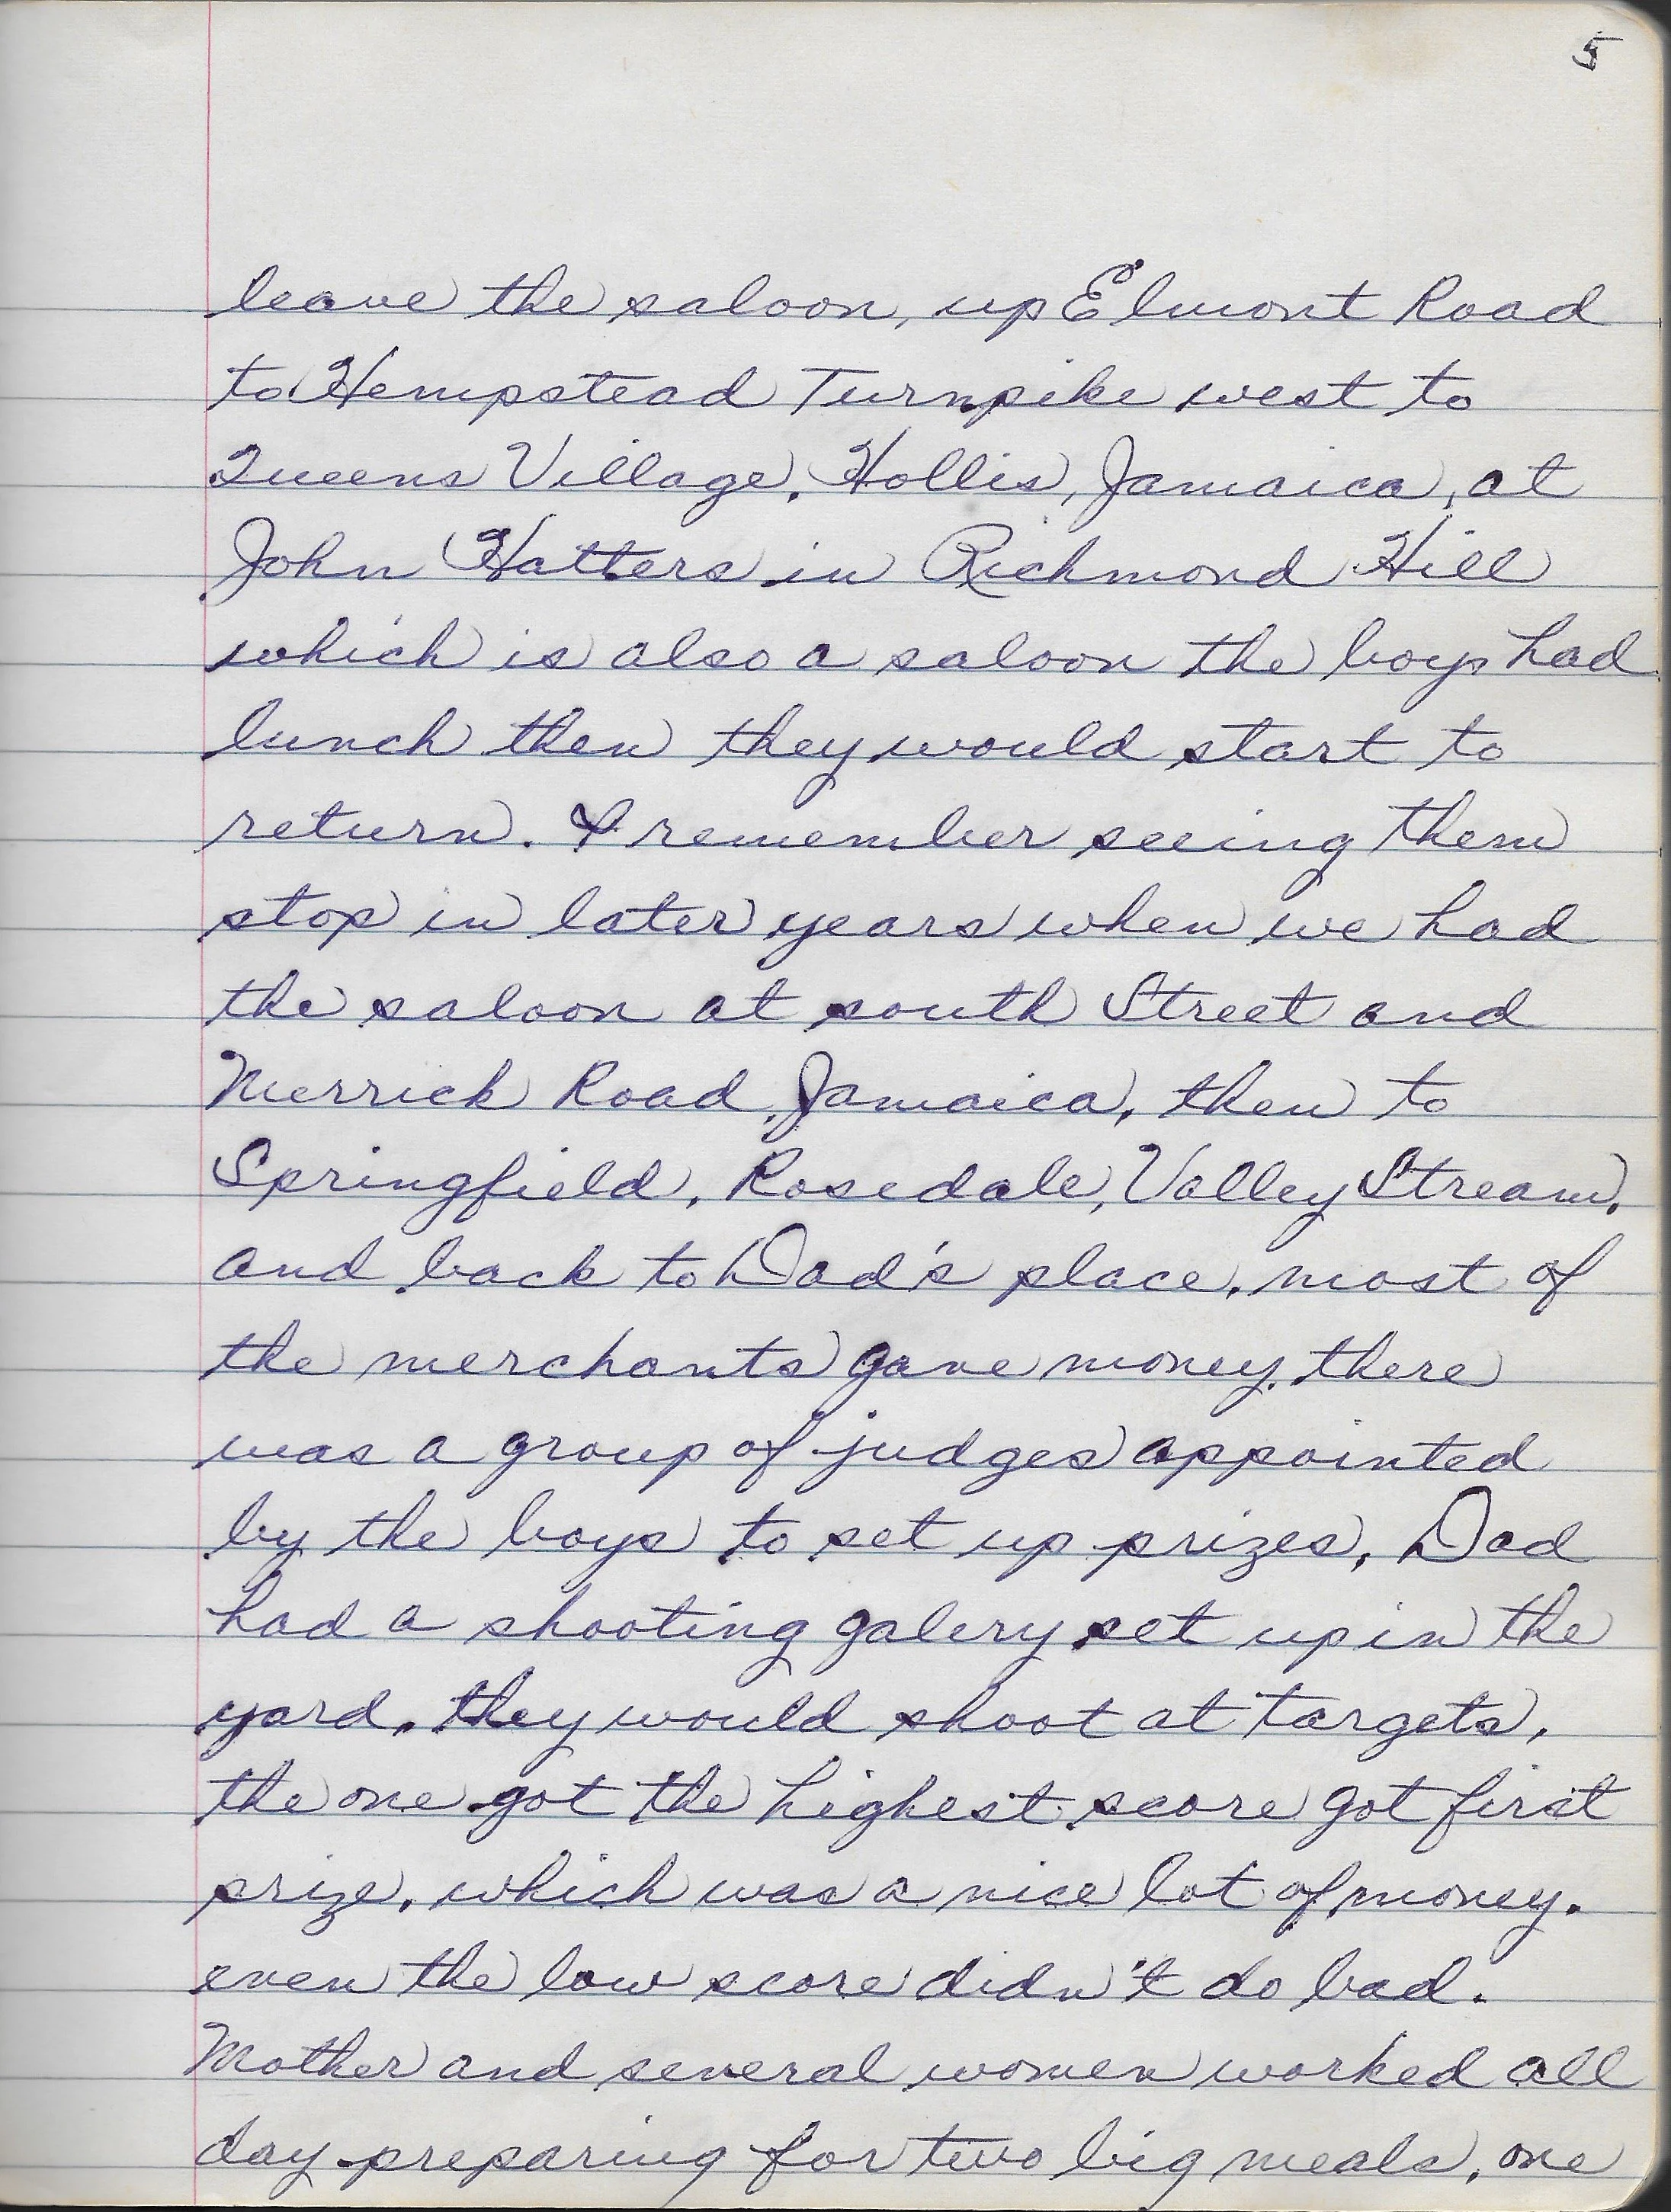 5
leave the saloon, up Elmont Road
to Hempstead Turnpike west to
Queens Village, Hollis, Jamaica, at
John Hatters in Richmond Hill
which is also a saloon the boys had
lunch then they would start to
return. I remember seeing them
stop in later years when we had
the saloon at south Street and
Merrick Road, Jamaica, then to
Springfield, Rosedale, Valley Stream,
and back to Dad's place, most of
the merchants gave money, there
was a group of judges appointed
by the boys to set up prizes, Dad
had a shooting galery set up in the
yard. they would shoot at targets,
the one got the highest score got first
prize, which was a nice lot of money.
even the low score didn't do bad.
Mother and several women worked all
day preparing for two big meals, one